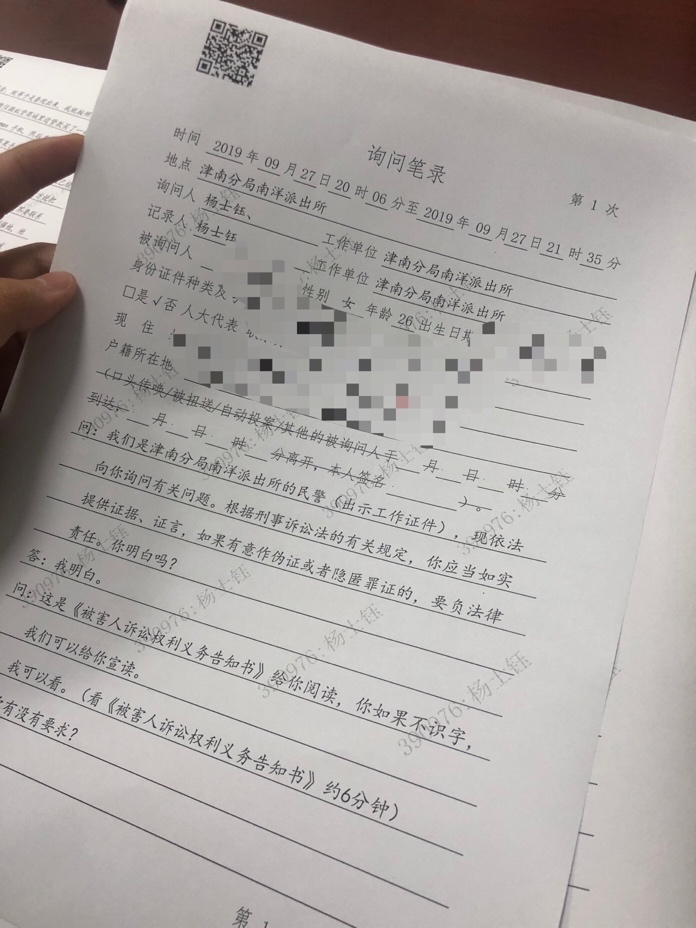 询问笔录
第 1 次
时间 2019 年 09 月 27 日 20 时 06 分至 2019 年 09 月 27 日 21 时 35 分
地点 津南分局南洋派出所
询问人 杨士钰、 工作单位 津南分局南洋派出所
记录人 杨士钰 工作单位 津南分局南洋派出所
被询问人 性别 女 年龄 26 出生日期
身份证件种类及
□是√否 人大代表
现 住
户籍所在地
(口头传唤/被扭送/自动投案/其他的被询问人于 月 日 时 分
到达, 月 日 时 分离开,本人签名 )。
问:我们是津南分局南洋派出所的民警(出示工作证件),现依法
向你询问有关问题。根据刑事诉讼法的有关规定,你应当如实
提供证据、证言,如果有意作伪证或者隐匿罪证的,要负法律
责任。你明白吗?
答:我明白。
问:这是《被害人诉讼权利义务告知书》给你阅读,你如果不识字,
我们可以给你宣读。
我可以看。(看《被害人诉讼权利义务告知书》约6分钟)
有没有要求?
第 1
390976:杨士钰